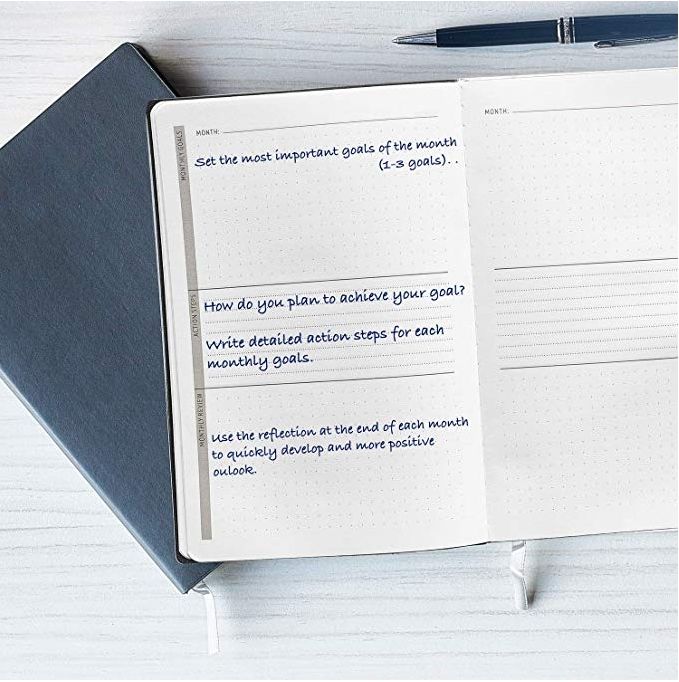 MONTH:
MONTHLY GOALS
Set the most important goals of the month
(1-3 goals). .
ACTION STEPS
How do you plan to achieve your goal?
Write detailed action steps for each
monthly goals.
MONTHLY REVIEW
Use the reflection at the end of each month
to quickly develop and more positive
oulook.
MONTH: